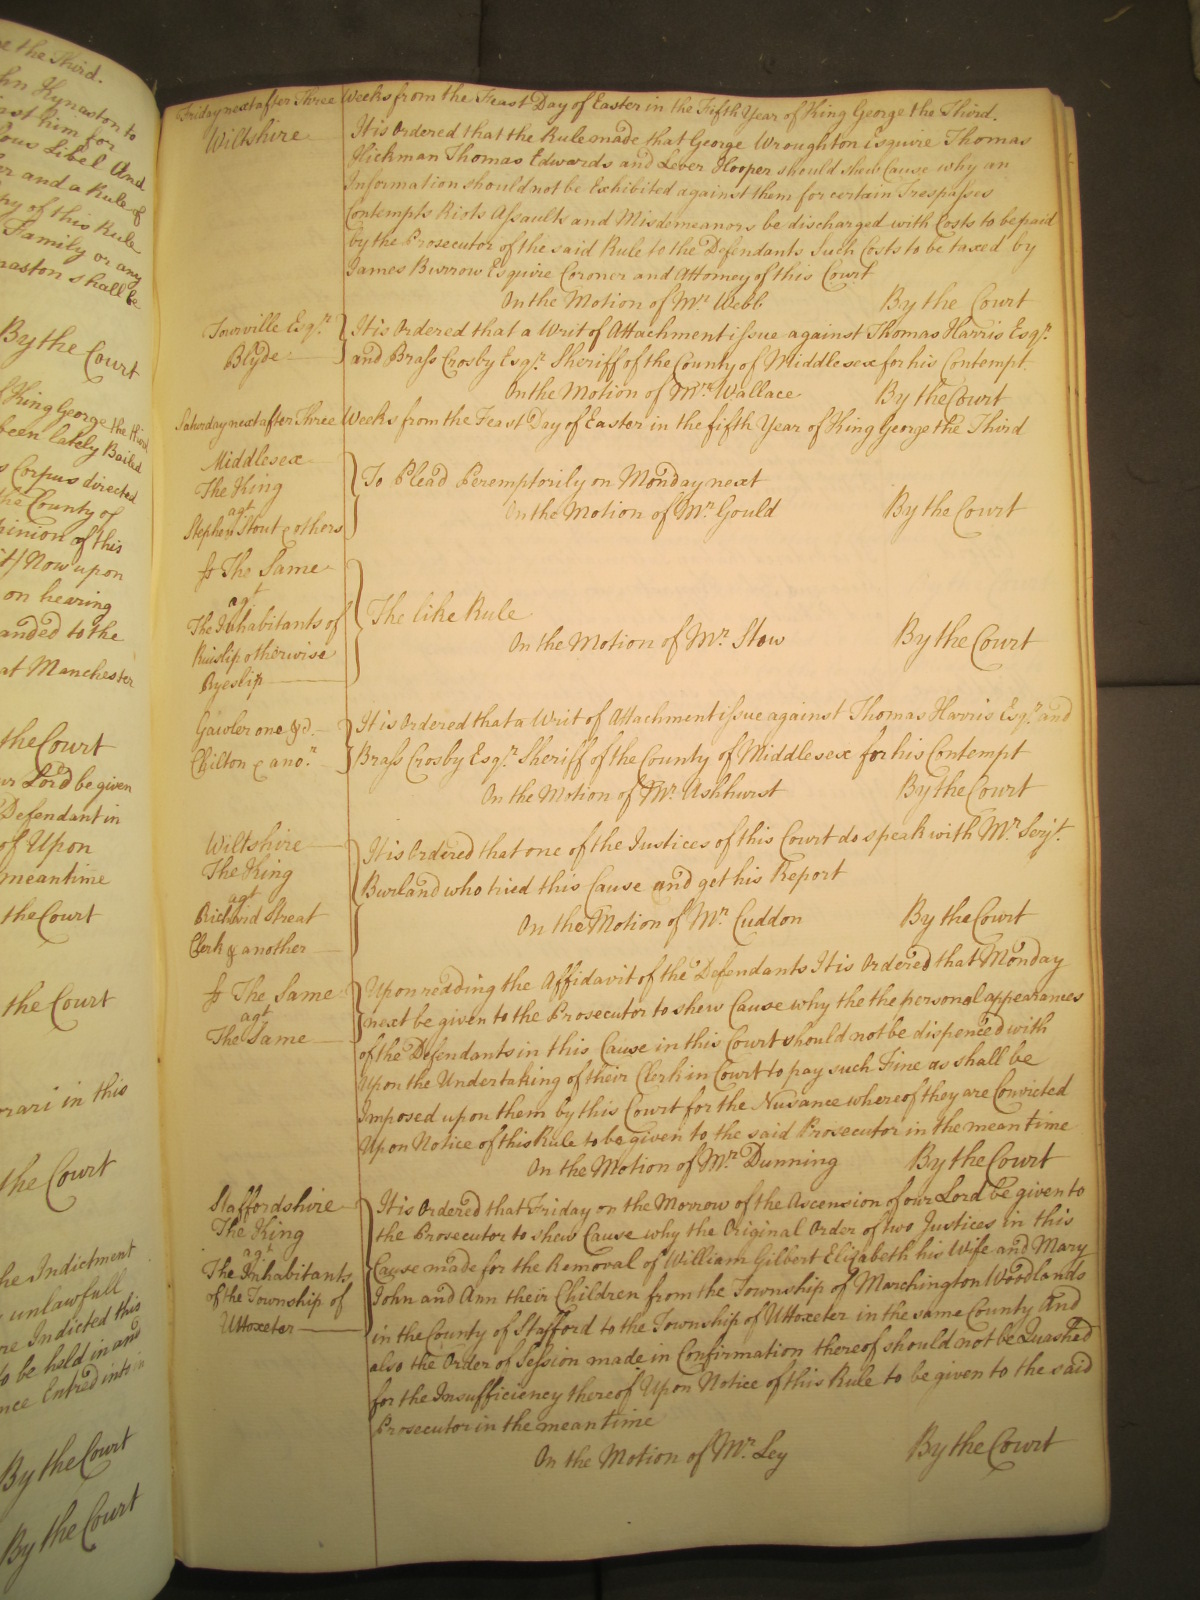 e the Third.
hn Kynaston to
nst him for
lous Libel And
er and a Rule of
py of this Rule
Family or any
naston shall be
By the Court
f King George the third
been lately Bailed
s Corpus directed
the County of
pinion of this
Now upon
on hearing
anded to the
at Manchester
the Court
ur Lord be given
Defendant in
of Upon
meantime
the Court
the Court
rari in this
the Court
he Indictment
unlawfull
re Indicted this
to be held in and
nce Entred into in
By the Court
By the Court
Friday next after Three Weeks from the Feast Day of Easter in the Fifth Year of King George the Third.
Wiltshire
It is Ordered that the Rule made that George Wroughton Esquire Thomas
Hickman Thomas Edwards and Lever Hooper should shew Cause why an
Information should not be Exhibited against them for certain Trespasses
Contempts Riots Assaults and Misdemeanors be discharged with Costs to be paid
by the Prosecutor of the said Rule to the Defendants Such Costs to be taxed by
James Burrow Esquire Coroner and Attorney of this Court
On the Motion of Mr. Webb By the Court
Tourville Esqr.
Blyde
It is Ordered that a Writ of Attachment issue against Thomas Harris Esqr.
and Brass Crosby Esqr. Sheriff of the County of Middlesex for his Contempt.
On the Motion of Mr. Wallace By the Court
Saturday next after Three Weeks from the Feast Day of Easter in the fifth Year of King George the Third
Middlesex
The King
agt
Stephen Stout & others
To Plead Peremptorily on Monday next
On the Motion of Mr. Gould By the Court
fs The Same
agt
The Inhabitants of
Ruislip otherwise
Ryeslip
The like Rule
On the Motion of Mr. Stow By the Court
Gawler one &c.
Chilton & anor.
It is Ordered that a Writ of Attachment issue against Thomas Harris Esqr. and
Brass Crosby Esqr. Sheriff of the County of Middlesex for his Contempt
On the Motion of Mr. Ashhurst By the Court
Wiltshire
The King
agt
Richard Streat
Clerk & another
It is Ordered that one of the Justices of this Court do speak with Mr. Serjt.
Burland who tried this Cause and get his Report
On the Motion of Mr. Cuddon By the Court
fs The Same
agt
The Same
Upon reading the Affidavit of the Defendants It is Ordered that Monday
next be given to the Prosecutor to shew Cause why the the personal appearances
of the Defendants in this Cause in this Court should not be dispenced with
Upon the Undertaking of their Clerk in Court to pay such Fine as shall be
Imposed upon them by this Court for the Nusance whereof they are Convicted
Upon Notice of this Rule to be given to the said Prosecutor in the mean time
On the Motion of Mr. Dunning By the Court
Staffordshire
The King
agt
The Inhabitants
of the Township of
Uttoxeter
It is Ordered that Friday on the Morrow of the Ascension of our Lord be given to
the Prosecutor to shew Cause why the Original Order of two Justices in this
Cause made for the Removal of William Gilbert Elizabeth his Wife and Mary
John and Ann their Children from the Township of Marchington Woodlands
in the County of Stafford to the Township of Uttoxeter in the same County And
also the Order of Session made in Confirmation thereof should not be Quashed
for the Insufficiency thereof Upon Notice of this Rule to be given to the said
Prosecutor in the mean time
On the Motion of Mr. Ley By the Court